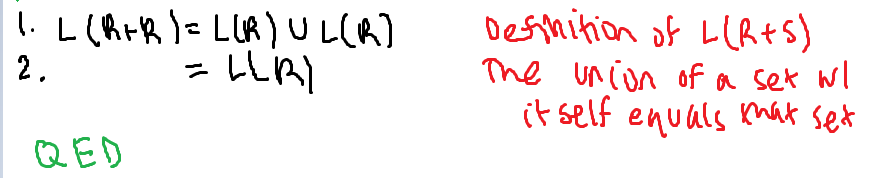 1. L(R+R) = L(R) U L(R) Definition of L(R+S)
2. = L(R) The union of a set w/
itself equals that set
QED